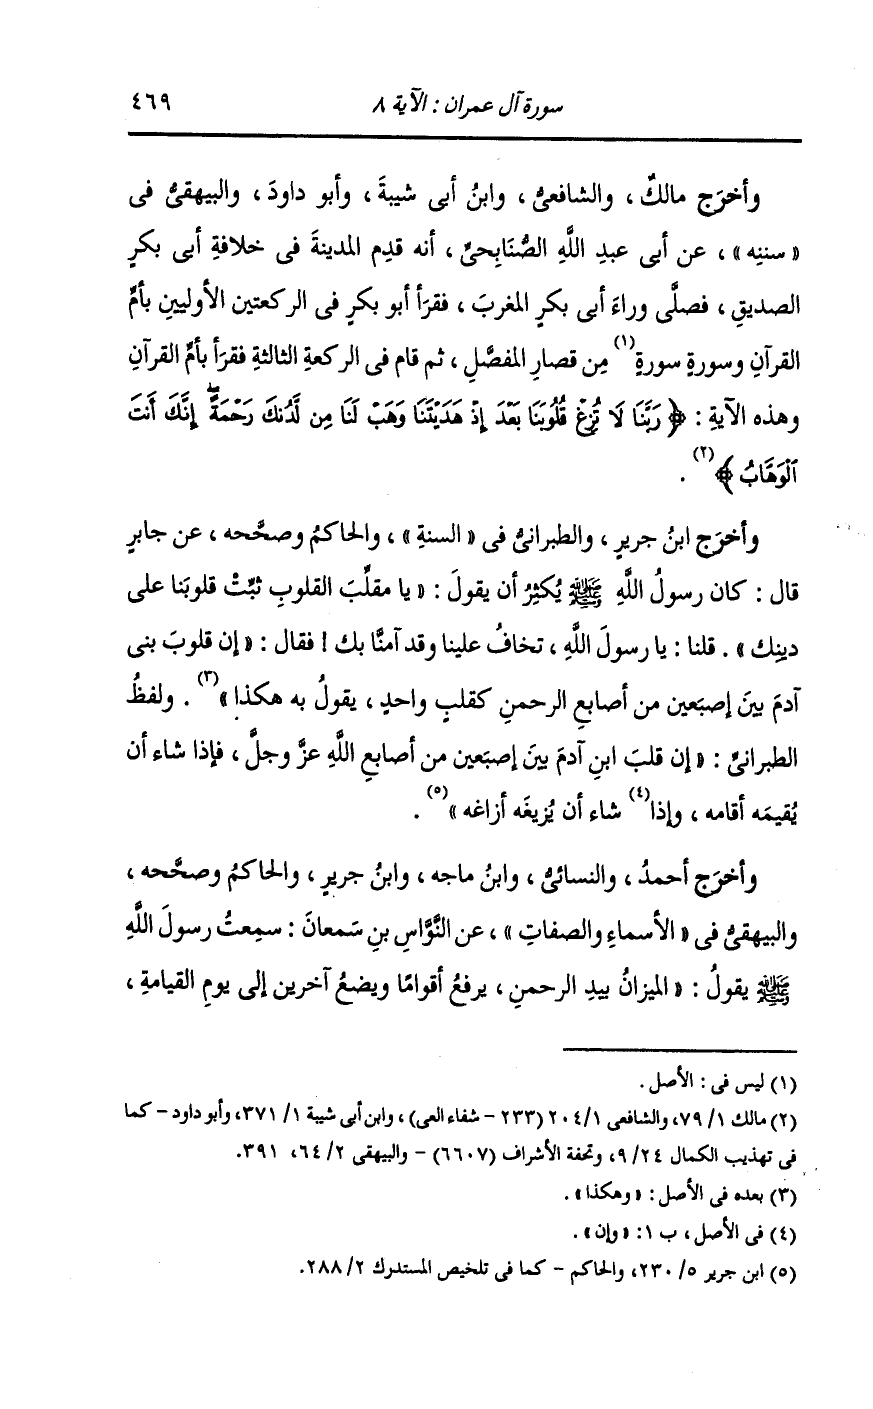 سورة آل عمران : الآية ٨ ٤٦٩
وأخرَج مالكٌ ، والشافعىُّ ، وابنُ أبى شيبةَ ، وأبو داودَ ، والبيهقىُّ فى
« سننِه » ، عن أبى عبدِ اللَّهِ الصُّنَابِحىِّ ، أنه قدِم المدينةَ فى خلافةِ أبى بكرٍ
الصديقِ ، فصلَّى وراءَ أبى بكرٍ المغربَ ، فقرَأ أبو بكرٍ فى الركعتين الأوليينِ بأمِّ
القرآنِ وسورةٍ سورةٍ(١) مِن قصارِ المفصَّلِ ، ثم قام فى الركعةِ الثالثةِ فقرَأ بأمِّ القرآنِ
وهذه الآيةِ : ﴿ رَبَّنَا لَا تُزِغْ قُلُوبَنَا بَعْدَ إِذْ هَدَيْتَنَا وَهَبْ لَنَا مِن لَّدُنكَ رَحْمَةً ۚ إِنَّكَ أَنتَ
ٱلْوَهَّابُ ﴾(٢) .
وأخرَج ابنُ جريرٍ ، والطبرانىُّ فى « السنةِ » ، والحاكمُ وصحَّحه ، عن جابرٍ
قال : كان رسولُ اللَّهِ ﷺ يُكثِرُ أن يقولَ : « يا مقلِّبَ القلوبِ ثبِّتْ قلوبَنا على
دينِك » . قلنا : يا رسولَ اللَّهِ ، تخافُ علينا وقد آمنَّا بك ! فقال : « إن قلوبَ بنى
آدمَ بينَ إصبَعين من أصابعِ الرحمنِ كقلبٍ واحدٍ ، يقولُ به هكذا »(٣) . ولفظُ
الطبرانىِّ : « إن قلبَ ابنِ آدمَ بينَ إصبَعين من أصابعِ اللَّهِ عزَّ وجلَّ ، فإذا شاء أن
يُقيمَه أقامه ، وإذا(٤) شاء أن يُزيغَه أزاغه »(٥) .
وأخرَج أحمدُ ، والنسائىُّ ، وابنُ ماجه ، وابنُ جريرٍ ، والحاكمُ وصحَّحه ،
والبيهقىُّ فى « الأسماءِ والصفاتِ » ، عن النَّوَّاسِ بنِ سَمعانَ : سمِعتُ رسولَ اللَّهِ
ﷺ يقولُ : « الميزانُ بيدِ الرحمنِ ، يرفعُ أقوامًا ويضعُ آخرين إلى يومِ القيامةِ ،
(١) ليس فى : الأصل .
(٢) مالك ١/ ٧٩، والشافعى ٢٠٤/١ (٢٣٣ - شفاء العى) ، وابن أبى شيبة ١/ ٣٧١، وأبو داود - كما
فى تهذيب الكمال ٢٤/ ٩، وتحفة الأشراف (٦٦٠٧) - والبيهقى ٢/ ٦٤، ٣٩١.
(٣) بعده فى الأصل : « وهكذا » .
(٤) فى الأصل ، ب ١: « وإن » .
(٥) ابن جرير ٥/ ٢٣٠، والحاكم - كما فى تلخيص المستدرك ٢/ ٢٨٨.